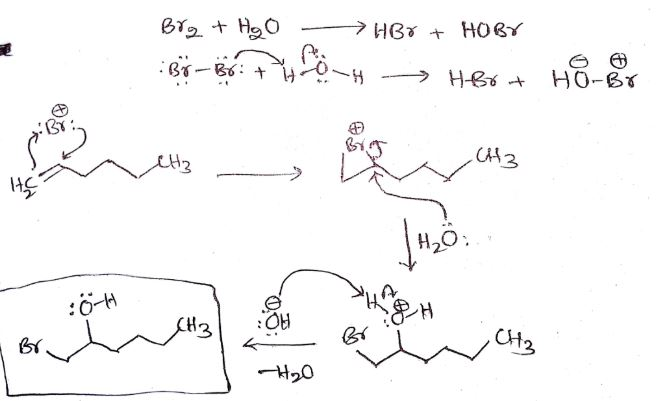 Br2 + H2O ⟶ HBr + HOBr
:Br̈–Br̈: + H–Ö–H ⟶ H-Br + HO⊖-Br⊕
:Br:⊕
H2C CH3 ⟶ Br⊕ CH3
H2Ö:
:Ö-H Br CH3 ⊖:ÖH -H2O H :O⊕-H Br CH3